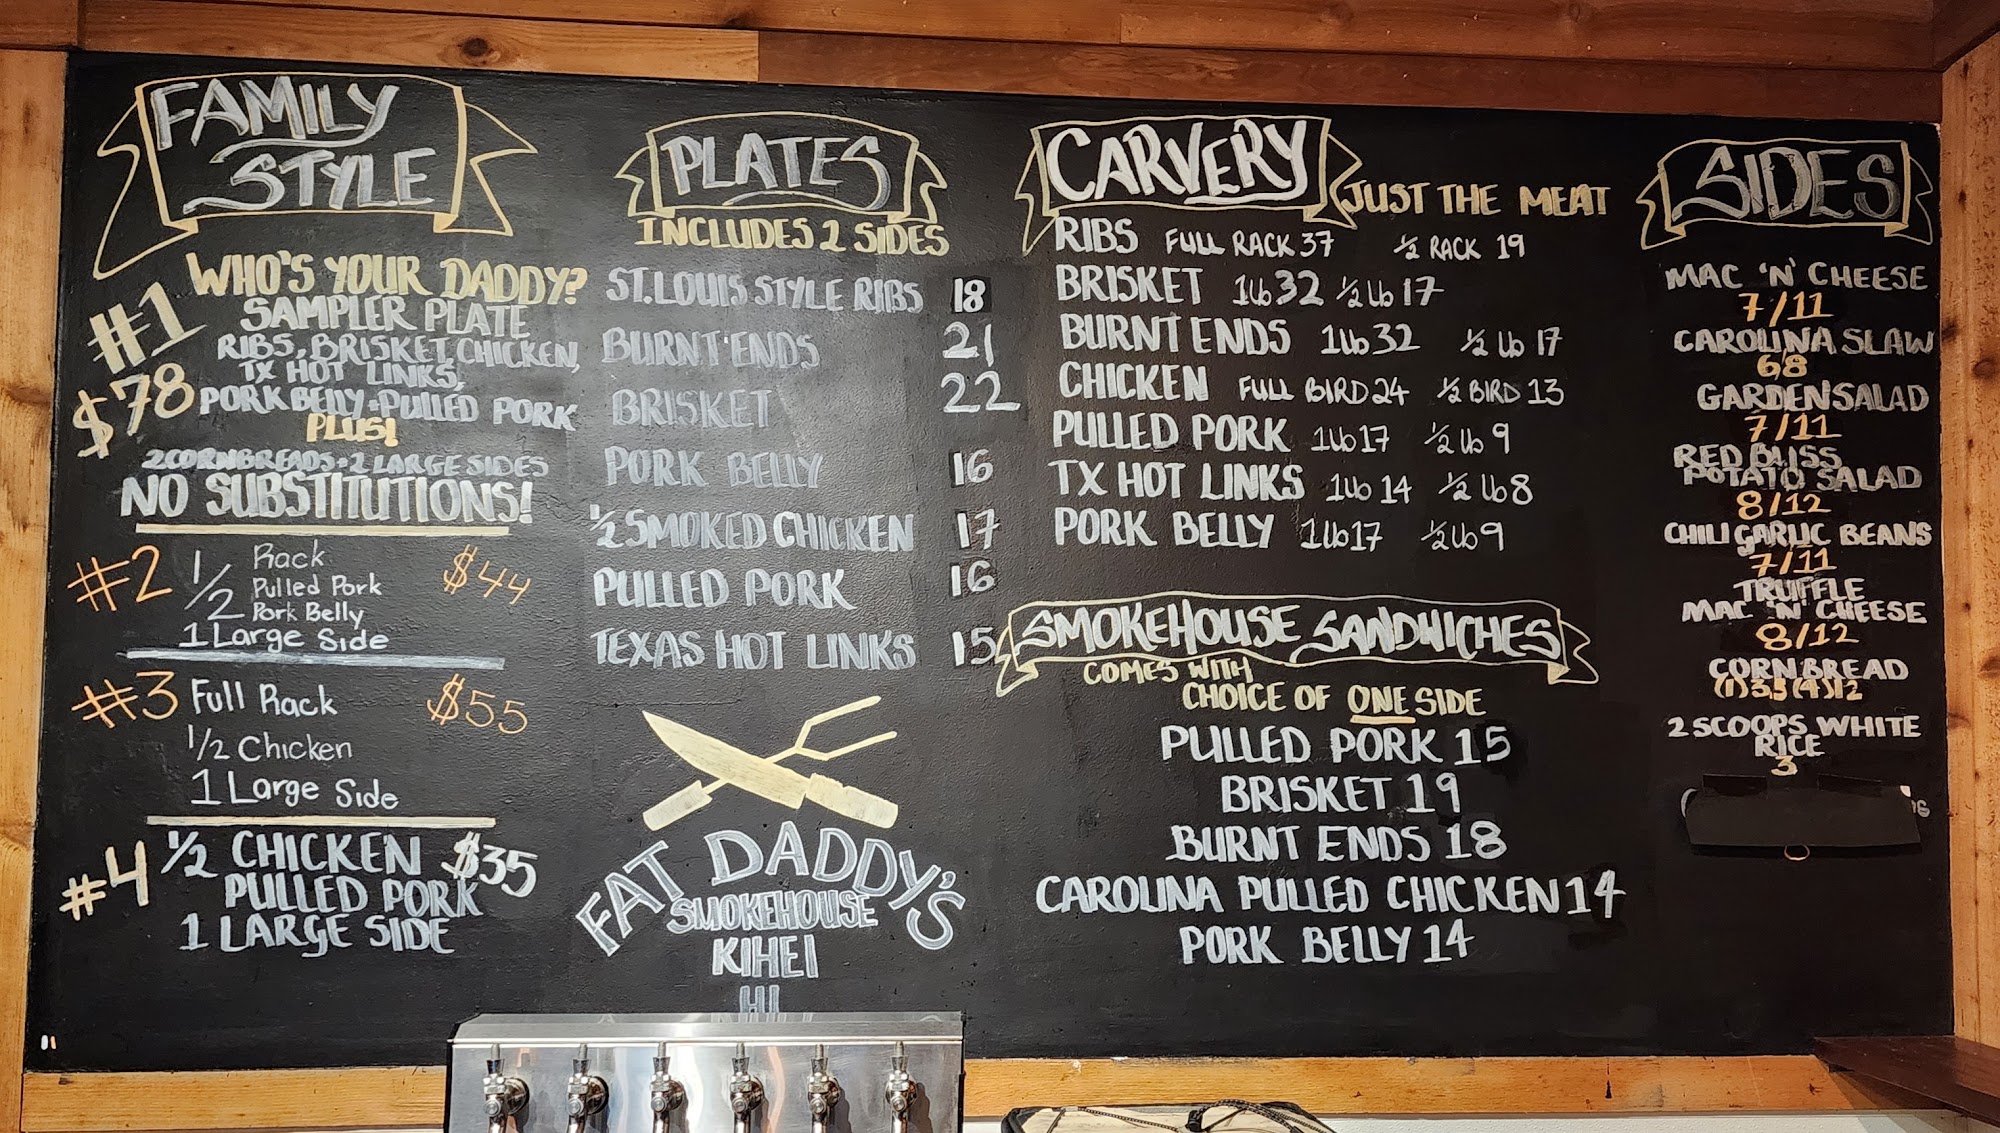 FAMILY
STYLE
#1
$78
WHO'S YOUR DADDY?
SAMPLER PLATE
RIBS, BRISKET, CHICKEN,
TX HOT LINKS,
PORK BELLY + PULLED PORK
PLUS!
2 CORNBREADS + 2 LARGE SIDES
NO SUBSTITUTIONS!
#2 1/2 Rack $44
Pulled Pork
Pork Belly
1 Large Side
#3 Full Rack $55
1/2 Chicken
1 Large Side
#4 1/2 CHICKEN $35
PULLED PORK
1 LARGE SIDE
PLATES
INCLUDES 2 SIDES
ST. LOUIS STYLE RIBS 18
BURNT ENDS 21
BRISKET 22
PORK BELLY 16
1/2 SMOKED CHICKEN 17
PULLED PORK 16
TEXAS HOT LINKS 15
FAT DADDY'S
SMOKEHOUSE
KIHEI
HI
CARVERY JUST THE MEAT
RIBS FULL RACK 37 1/2 RACK 19
BRISKET 1lb 32 1/2 lb 17
BURNT ENDS 1lb 32 1/2 lb 17
CHICKEN FULL BIRD 24 1/2 BIRD 13
PULLED PORK 1lb 17 1/2 lb 9
TX HOT LINKS 1lb 14 1/2 lb 8
PORK BELLY 1lb 17 1/2 lb 9
SMOKEHOUSE SANDWICHES
COMES WITH
CHOICE OF ONE SIDE
PULLED PORK 15
BRISKET 19
BURNT ENDS 18
CAROLINA PULLED CHICKEN 14
PORK BELLY 14
SIDES
MAC 'N' CHEESE
7/11
CAROLINA SLAW
6/8
GARDEN SALAD
7/11
RED BLISS
POTATO SALAD
8/12
CHILI GARLIC BEANS
7/11
TRUFFLE
MAC 'N' CHEESE
8/12
CORN BREAD
(1) 3.5 (4) 12
2 SCOOPS WHITE
RICE
3